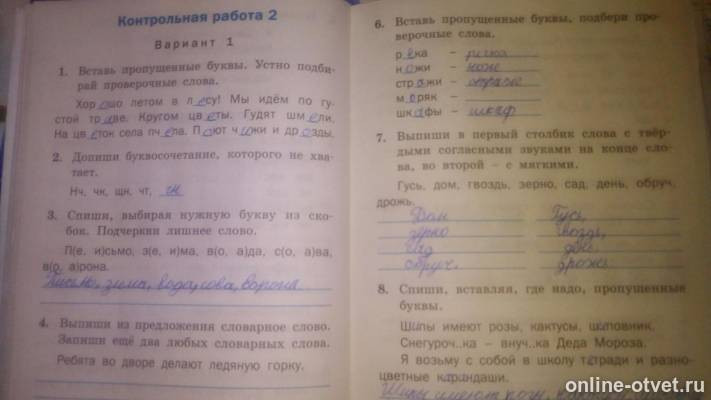 Контрольная работа 2
Вариант 1
1. Вставь пропущенные буквы. Устно подби-
рай проверочные слова.
Хорошо летом в лесу! Мы идём по гу-
стой траве. Кругом цветы. Гудят шмели.
На цветок села пчела. Поют чижи и дрозды.
2. Допиши буквосочетание, которого не хва-
тает.
Нч, чк, щн, чт, чн
3. Спиши, выбирая нужную букву из ско-
бок. Подчеркни лишнее слово.
П(е, и)сьмо, з(е, и)ма, в(о, а)да, с(о, а)ва,
в(о, а)рона.
Письмо, зима, вода, сова, ворона
4. Выпиши из предложения словарное слово.
Запиши ещё два любых словарных слова.
Ребята во дворе делают ледяную горку.
6. Вставь пропущенные буквы, подбери про-
верочные слова.
река –
ножи –
стражи –
моряк –
шкафы – шкаф
7. Выпиши в первый столбик слова с твёр-
дыми согласными звуками на конце сло-
ва, во второй – с мягкими.
Гусь, дом, гвоздь, зерно, сад, день, обруч,
дрожь.
Дом Гусь,
зерно
сад
обруч. дрожь
8. Спиши, вставляя, где надо, пропущенные
буквы.
Шипы имеют розы, кактусы, шиповник.
Снегуроч..ка – внуч..ка Деда Мороза.
Я возьму с собой в школу тетради и разно-
цветные карандаши.
Шипы имеют розы,
online-otvet.ru